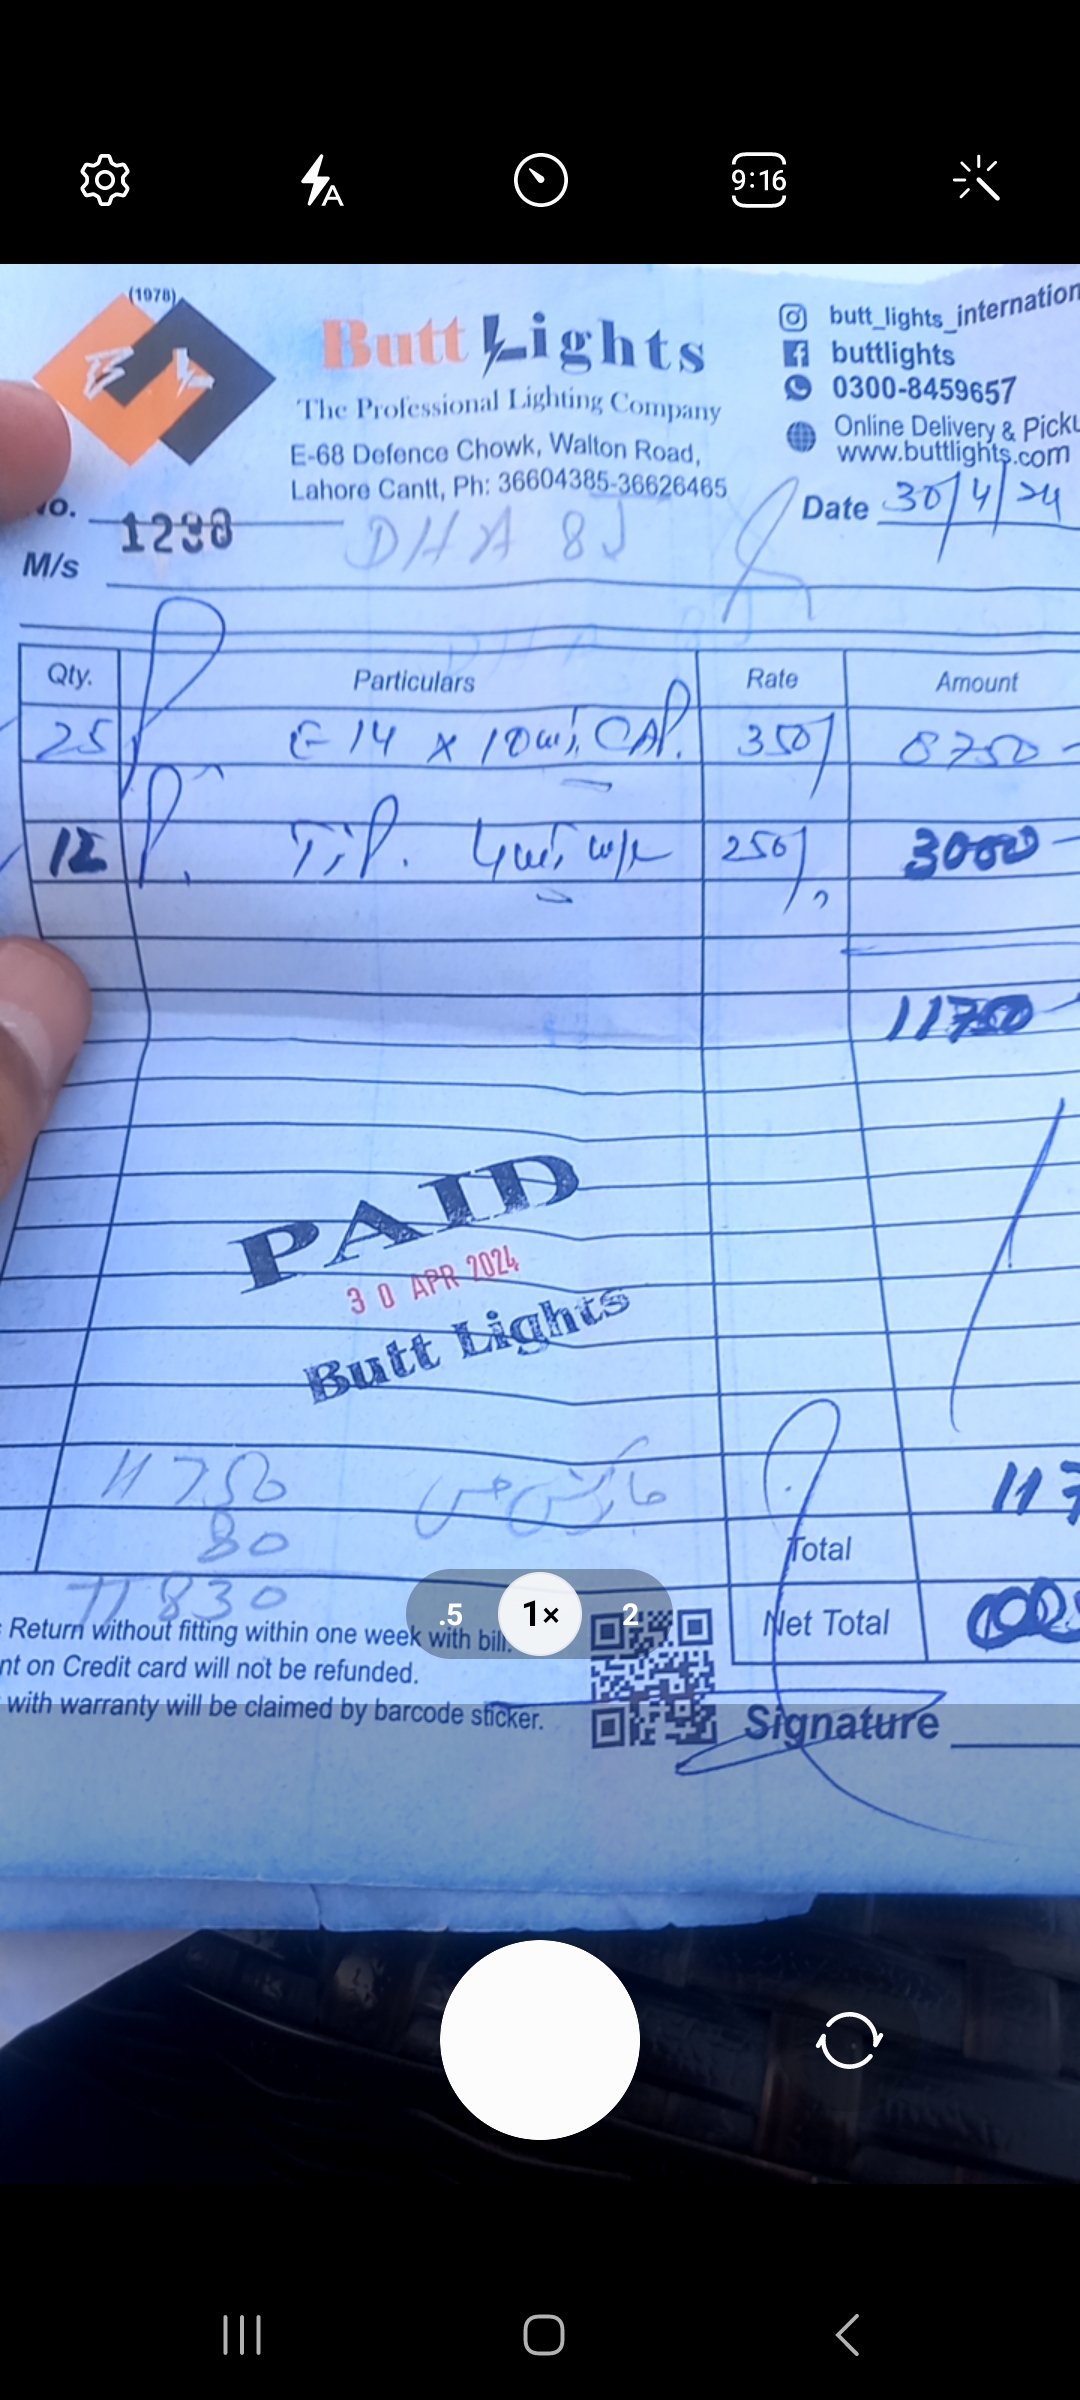 9:16
(1978)
Butt Lights
The Professional Lighting Company
E-68 Defence Chowk, Walton Road,
Lahore Cantt, Ph: 36604385-36626465
butt_lights_internation
buttlights
0300-8459657
Online Delivery & Picku
www.buttlights.com
No. 1298
Date 30/4/24
M/s DHA 8J
Qty. Particulars Rate Amount
25 E-14 x 10wt CAP. 350/ 8750
12 T.P. 4wt w/w 250/ 3000
11750
PAID
30 APR 2024
Butt Lights
11750
80
11830
117
Total
Net Total
Return without fitting within one week with bill.
nt on Credit card will not be refunded.
with warranty will be claimed by barcode sticker.
Signature
.5 1× 2